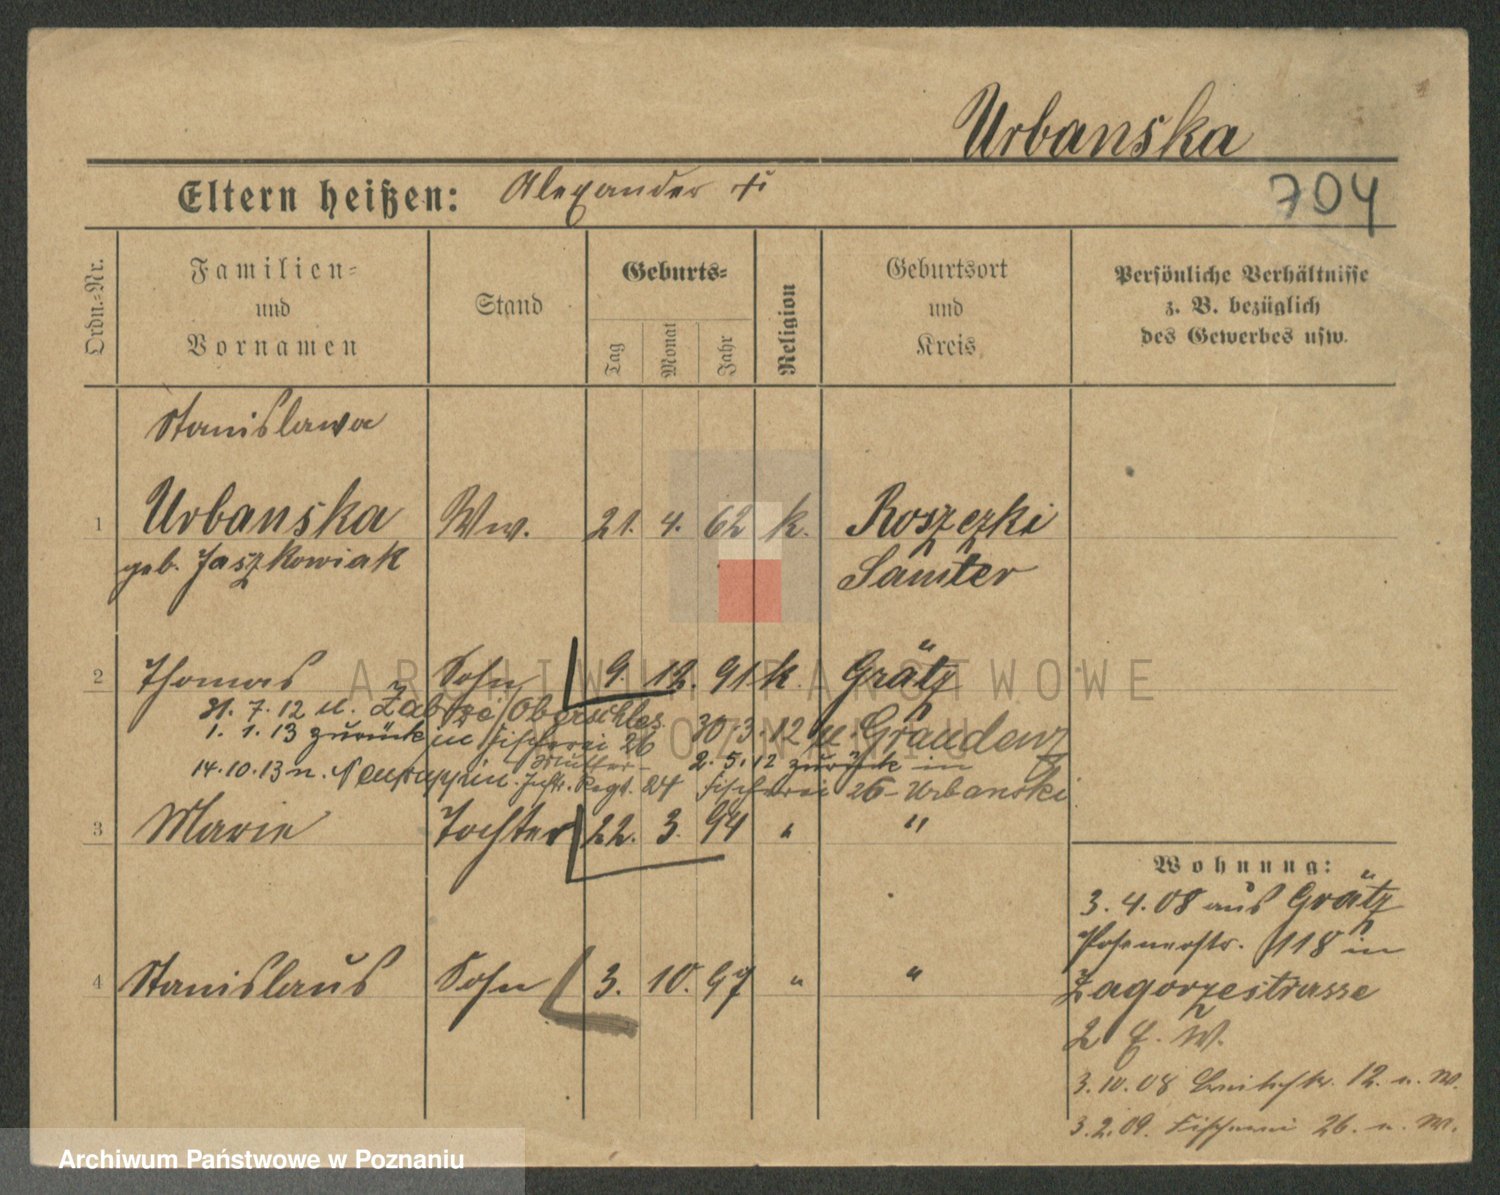 Urbanska
Eltern heißen: Alexander
704
Ordn.-Nr.
Familien-
und
Vornamen
Stand
Geburts-
Tag
Monat
Jahr
Religion
Geburtsort
und
Kreis
Persönliche Verhältnisse
z. B. bezüglich
des Gewerbes usw.
Stanislawa
1 Urbanska Ww. 21. 4. 62 k. Roszczki
geb. Jaszkowiak Samter
2 Thomas Sohn 9. 12. 91 k. Grätz
31. 7. 12 n. Zabrze/Oberschles. 30. 3. 12 n. Graudenz
1. 1. 13 zurück in Fischerei 26 2. 5. 12 zurück in
Mutter-
14. 10. 13 n. Neuruppin. Inftr. Regt. 24 Fischerei 26 - Urbanski
3 Marie Tochter 22. 3. 94 " "
4 Stanislaus Sohn 3. 10. 97 " "
Wohnung:
3. 4. 08 aus Grätz
Posenerstr. 118 in
Zagorzestrasse
2 E. W.
3. 10. 08 Breitestr. 12. n. W.
3. 2. 09. Fischerei 26. n. W.
ARCHIWUM PAŃSTWOWE
W POZNANIU
Archiwum Państwowe w Poznaniu